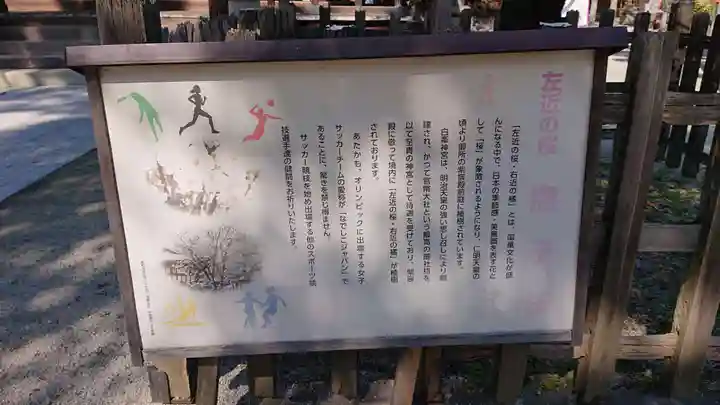 左近の桜
「左近の桜・右近の橘」とは、国風文化が盛
んになる中で、日本の季節感・美意識を表す花と
して「桜」が象徴されるようになり、仁明天皇の
頃より御所の紫宸殿前庭に植樹されています。
白峯神宮は、明治天皇の強い思し召しにより創
建され、かつて官幣大社という最高の御社格を
以て至貴の神宮として待遇を受けており、紫宸
殿に倣って境内に「左近の桜・右近の橘」が植樹
されております。
あたかも、オリンピックに出場する女子
サッカーチームの愛称が「なでしこジャパン」で
あることに、驚きを禁じ得ません。
サッカー競技を始め出場する他のスポーツ競
技選手達の健闘をお祈りいたします。